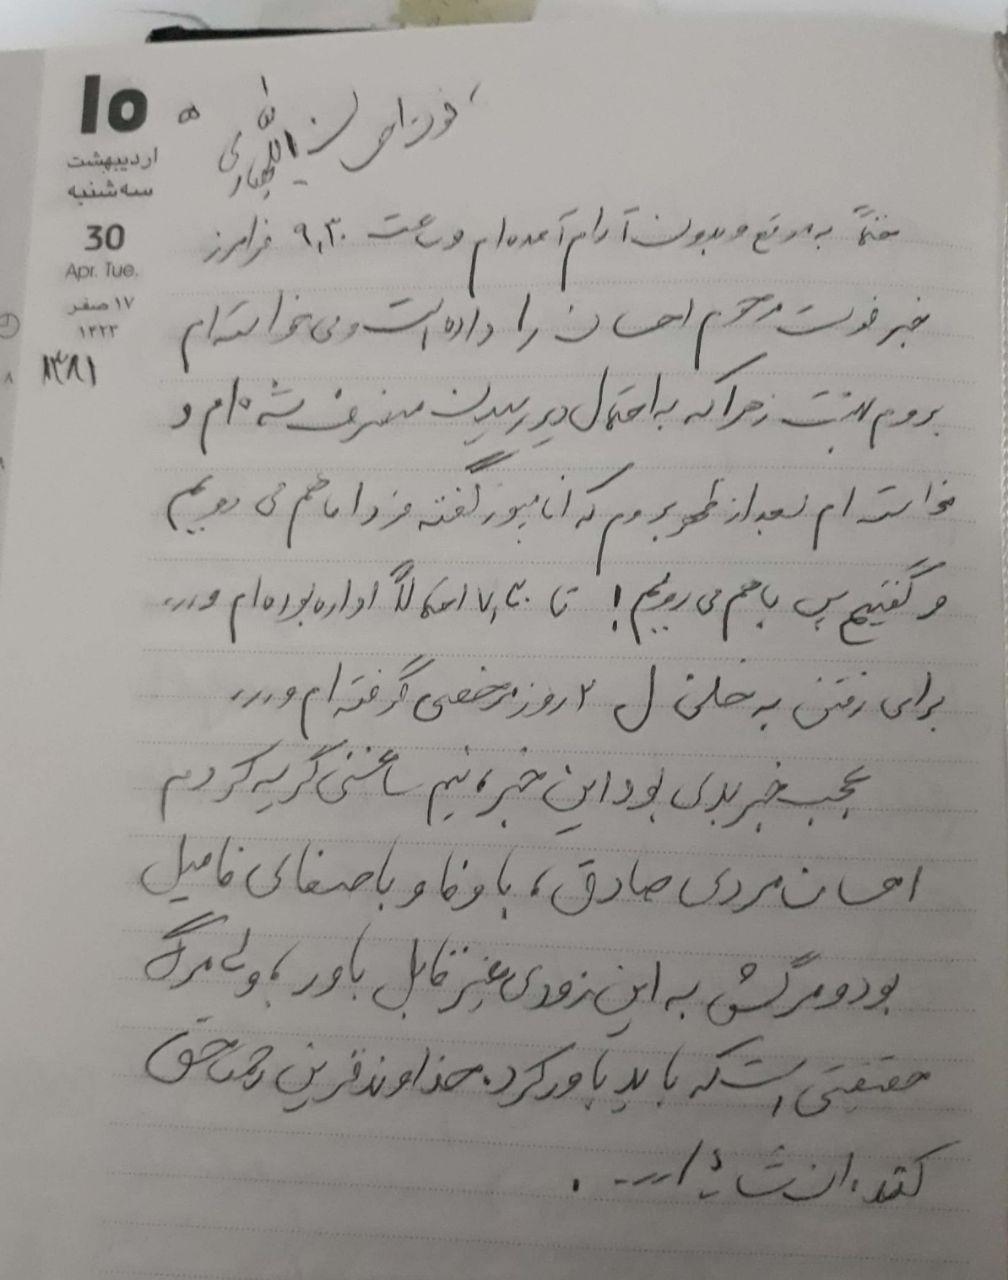 ۱۰
اردیبهشت
سه‌شنبه
30
Apr. Tue.
۱۷ صفر
۱۴۲۳
۱۳۸۱
فوت احسان
حتماً به موقع و بدون آرام آمده‌ام و ساعت ۹,۳۰ فرامرز
خبر فوت مرحوم احسان را داده است و می‌خواسته‌ام
بروم بهشت زهرا که به احتمال دیر رسیدن منصرف شده‌ام و
خواسته‌ام بعد از ظهر بروم که گفته فردا ما هم می‌رویم
و گفتیم پس با هم می‌رویم! تا ۷,۳۰ احتمالاً اداره بوده‌ام و...
برای رفتن به ۲ روز مرخصی گرفته‌ام و....
عجب خبر بدی بود این خبر، نیم ساعتی گریه کردم
احسان مردی صادق، با وفا و با صفای فامیل
بود و مرگش به این زودی غیر قابل باور، ولی مرگ
حقیقتی است که باید باور کرد. خداوند قرین رحمت حق
کند. ان شاء ا... .